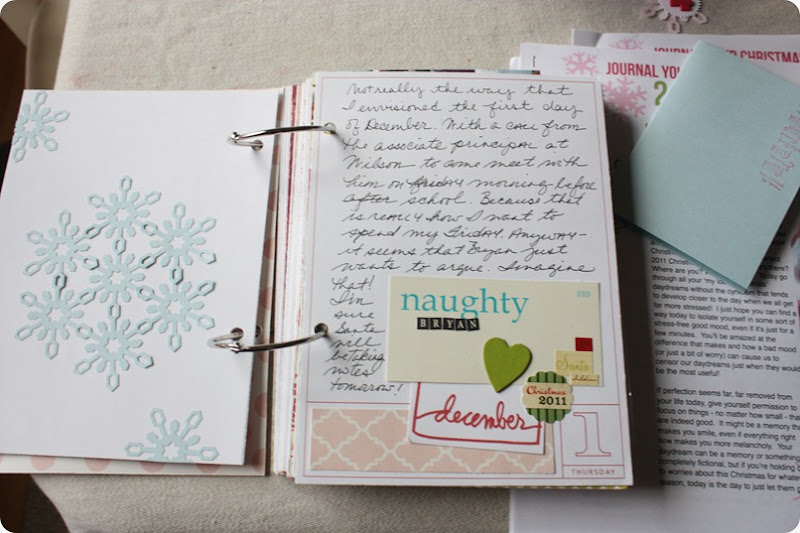 Not really the way that
I envisioned the first day
of December. With a call from
the associate principal at
Wilson to come meet with
him on friday morning before
after school. Because that
is really how I want to
spend my Friday. Anyway-
it seems that Bryan just
wants to argue. Imagine
that!
I'm
sure
Santa
will
be taking
notes
tomorrow!
naughty
BRYAN
Santa
Christmas
2011
december
1
THURSDAY
CHRISTMAS
JOURNAL YO
2
2011 Christ
Where are you?
through all your
daydreams without the cynicism that tends
to develop closer to the day when we all get
far more stressed! I just hope you can find a
way today to isolate yourself in some sort of
stress-free good mood, even if it's just for a
few minutes. You'll be amazed at the
difference that makes and how a bad mood
(or just a bit of worry) can cause us to
censor our daydreams just when they would
be the most useful!
If perfection seems far, far removed from
your life today, give yourself permission to
focus on things - no matter how small - tha
are indeed good. It might be a memory tha
makes you smile, even if everything right
now makes you more melancholy. Your
daydream can be a memory or something
completely fictional, but if you're holding o
to worries about this Christmas for whatev
reason, today is the day to just let them g